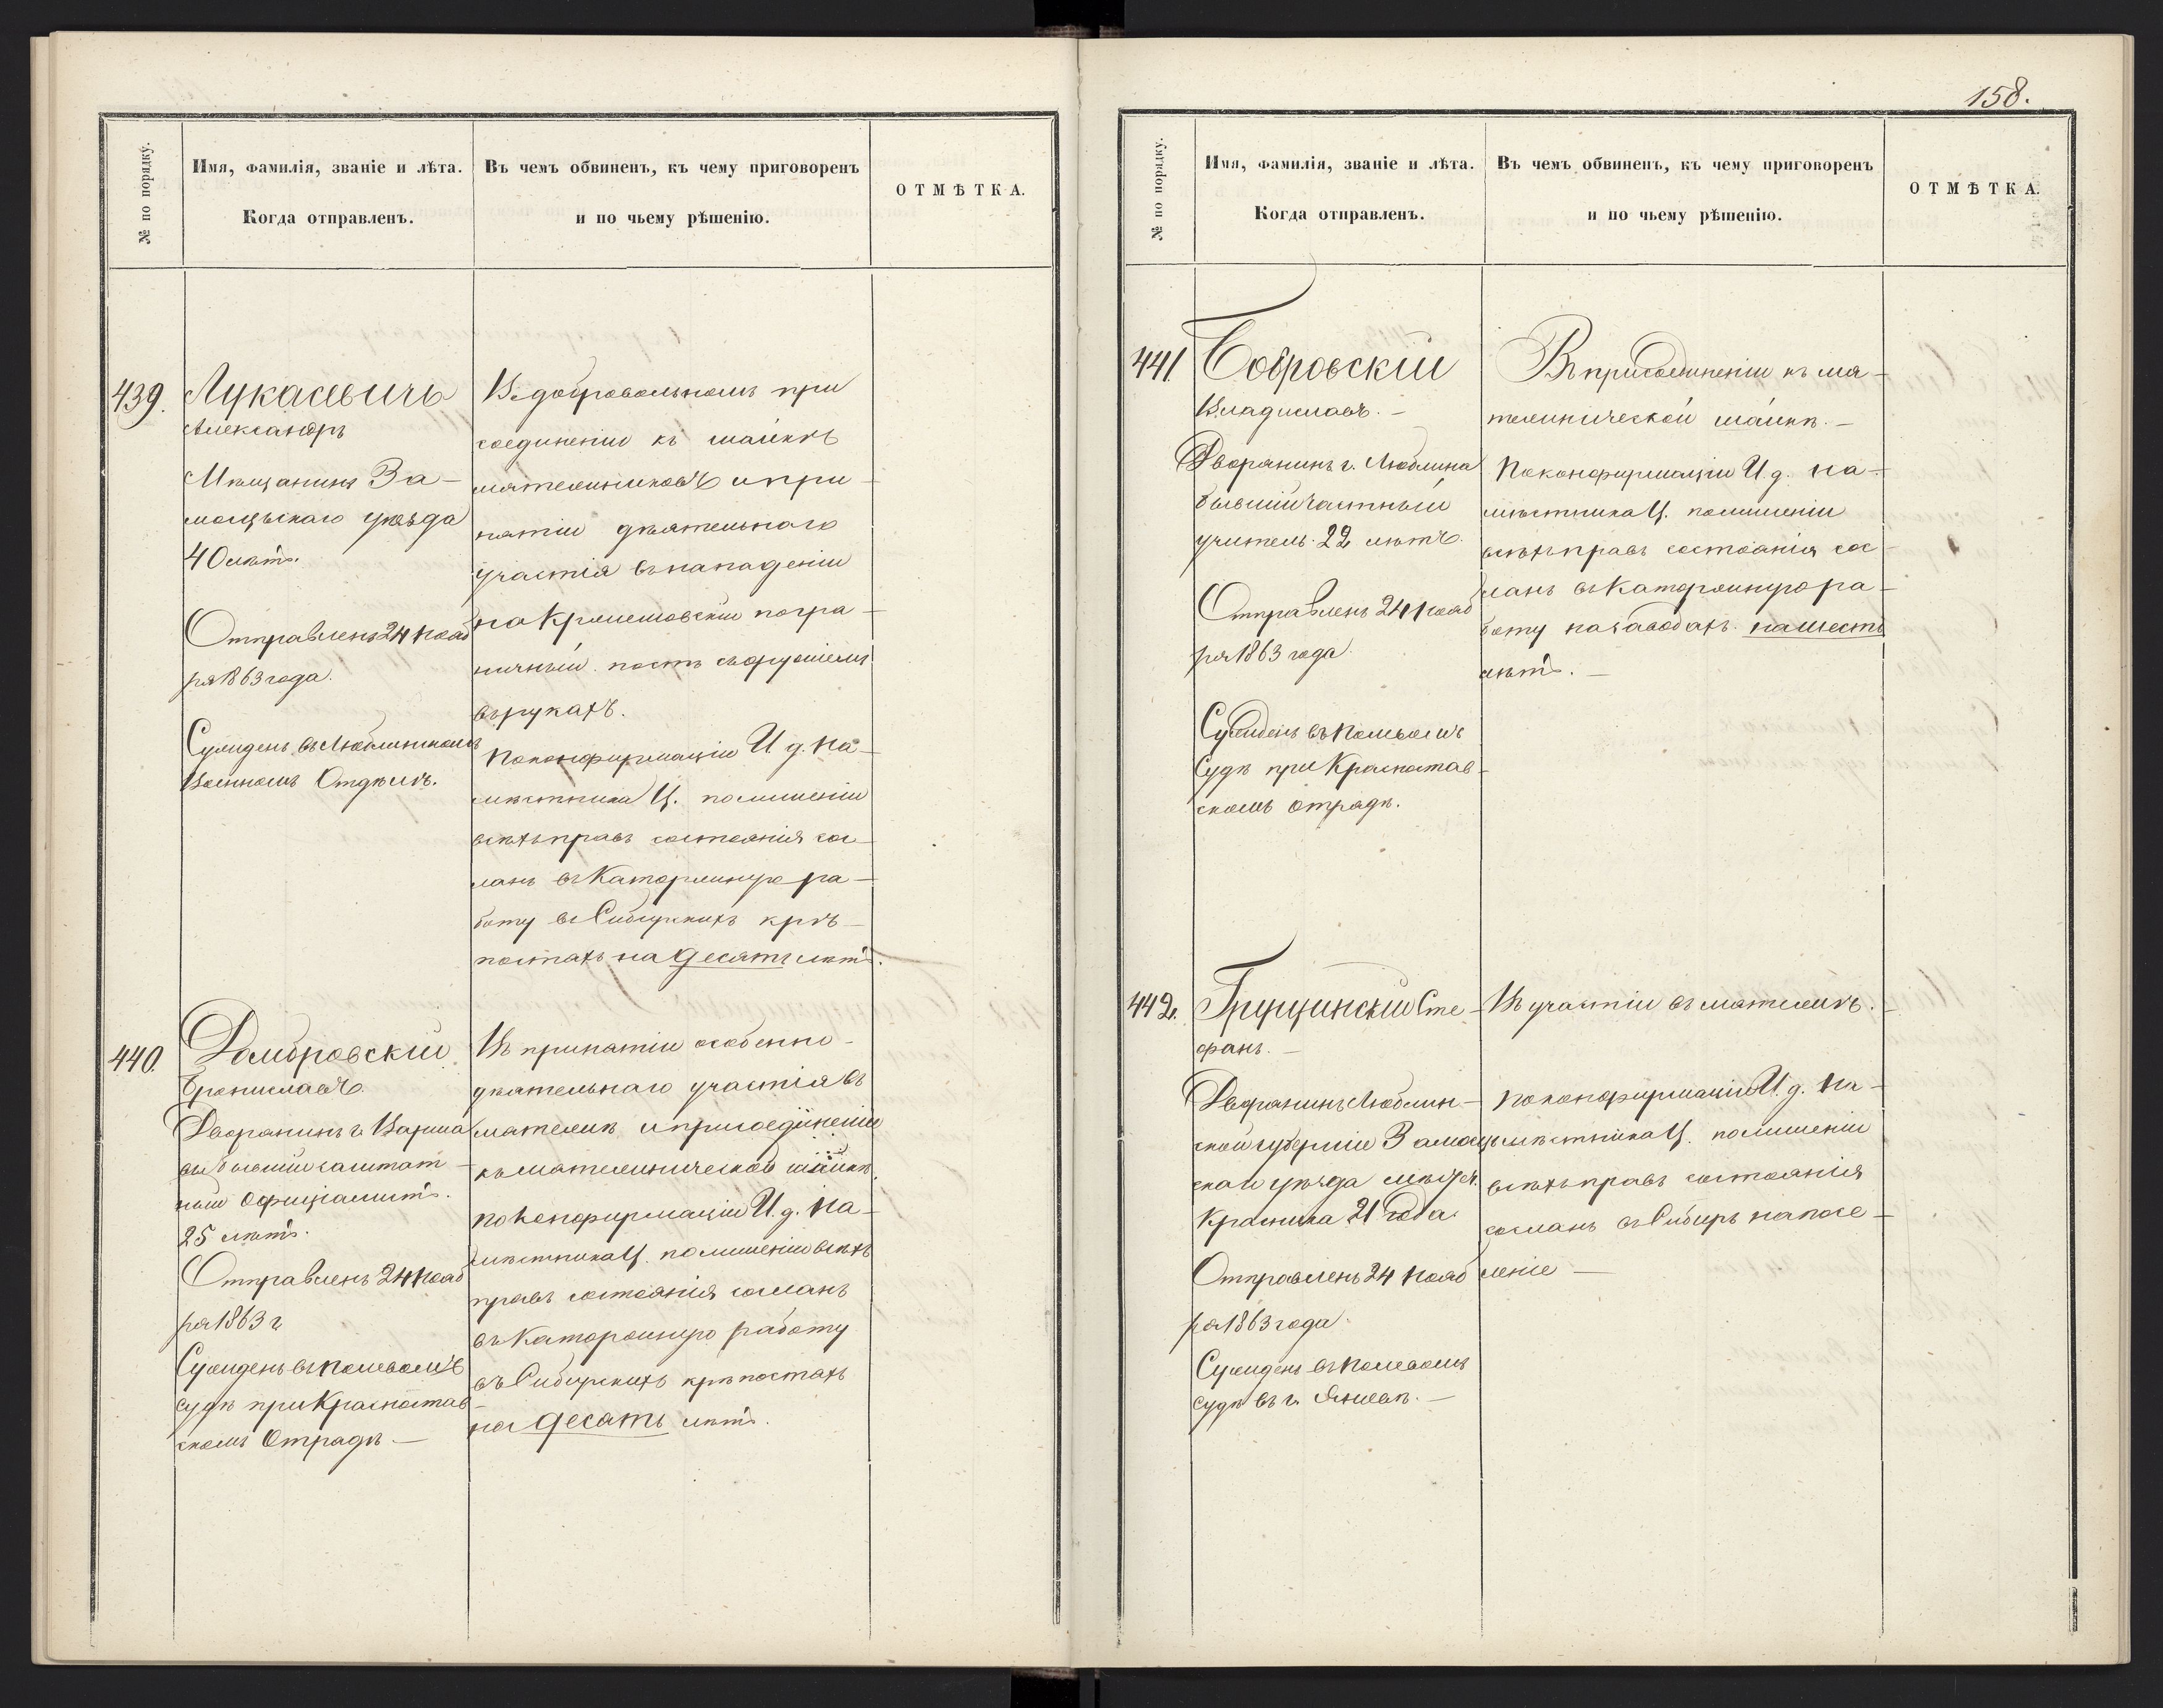 № по порядку.
Имя, фамилія, званіе и лѣта.
Когда отправленъ.
Въ чемъ обвиненъ, къ чему приговоренъ
и по чьему рѣшенію.
ОТМѢТКА.
439.
Лукасевичъ
Александръ
Мѣщанинъ За-
мосцьскаго уѣзда
40 лѣтъ.
Отправленъ 24 нояб
ря 1863 года.
Сужденъ въ Люблинскомъ
Военномъ Отдѣлѣ.
Въ добровольномъ при
соединеніи къ шайкѣ
мятежниковъ и при-
нятіи дѣятельнаго
участія въ нападеніи
на погра-
ничный постъ съ оружіемъ
въ рукахъ.
По конфирмаціи И. д. На-
мѣстника Ц. по лишеніи
всѣхъ правъ состоянія сос-
ланъ въ Каторжную ра-
боту въ Сибирскихъ крѣ-
постахъ на десять лѣтъ.
440.
Домбровскій
Брониславъ.
Дворянинъ г. Варша
вы бывшій заштат-
ный Оффиціалистъ.
25 лѣтъ.
Отправленъ 24 нояб
ря 1863 г
Сужденъ въ полевомъ
судѣ при Красностав-
скомъ Отрядѣ. —
Въ принятіи особенно-
дѣятельнаго участія въ
мятежѣ и присоединеніи
къ мятежнической шайкѣ.
По Конфирмаціи И. д. На-
мѣстника Ц. по лишеніи всѣхъ
правъ состоянія сосланъ
въ Каторжную работу
въ Сибирскихъ крѣпостахъ
на десять лѣтъ.
158.
№ по порядку.
Имя, фамилія, званіе и лѣта.
Когда отправленъ.
Въ чемъ обвиненъ, къ чему приговоренъ
и по чьему рѣшенію.
ОТМѢТКА.
441.
Бобровскій
Владиславъ. —
Дворянинъ г. Люблина
бывшій частный
учитель. 22 лѣтъ.
Отправленъ 24 нояб
ря 1863 года.
Сужденъ въ полевомъ
Судѣ при Красностав-
скомъ отрядѣ.
Въ присоединеніи къ мя-
тежнической шайкѣ. —
По конфирмаціи И. д. На-
мѣстника Ц. по лишеніи
всѣхъ правъ состоянія сос-
ланъ въ Каторжную ра-
боту на заводахъ на шесть
лѣтъ. —
442.
Грущинскій Сте-
фанъ. —
Дворянинъ Люблин-
ской губерніи Замосць
скаго уѣзда мѣст.
Красника 21 года.
Отправленъ 24 нояб
ря 1863 года.
Сужденъ въ полевомъ
судѣ въ г. Яневѣ. —
Въ участіи въ мятежѣ. —
По конфирмаціи И. д. На-
мѣстника Ц. по лишеніи
всѣхъ правъ состоянія
сосланъ въ Сибирь на посе-
леніе —